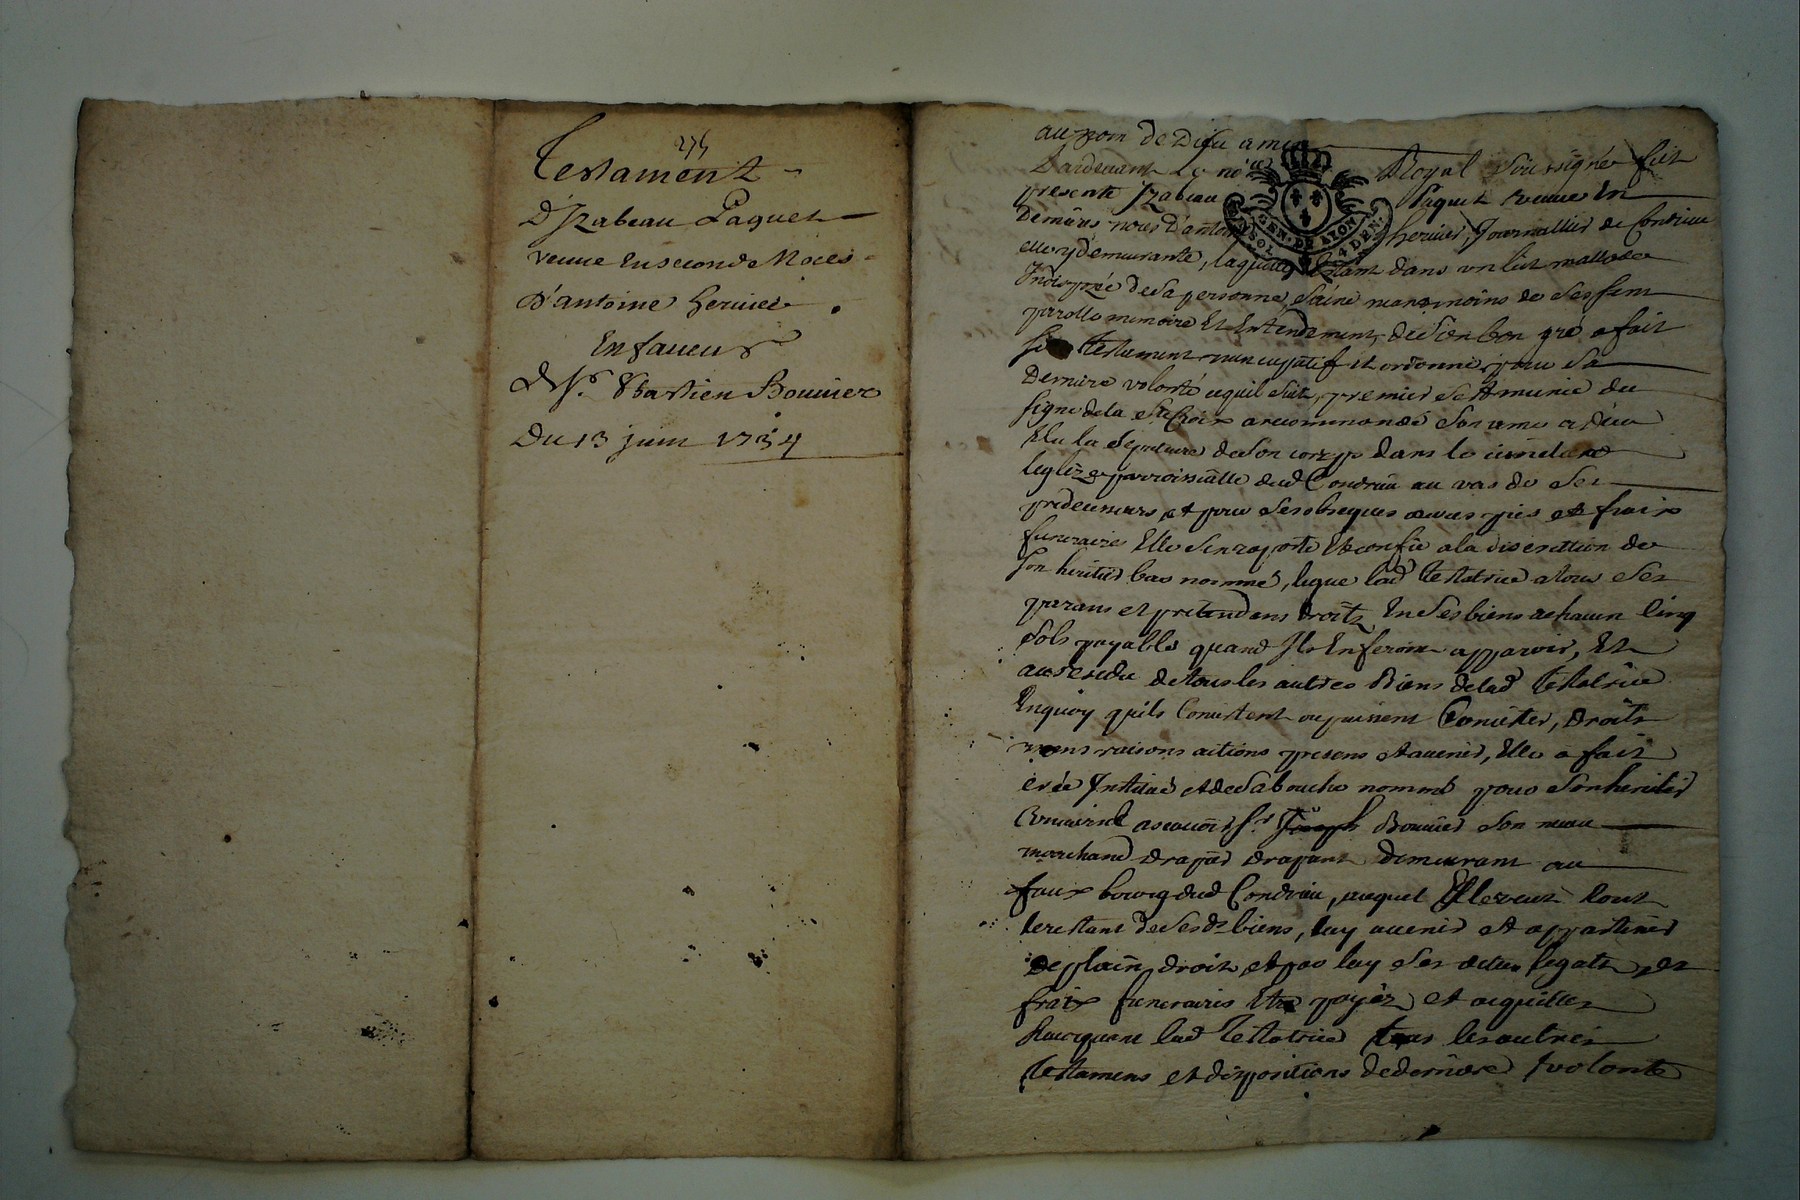 275
Testament
D'Izabeau Paquet
veuve En seconde Noces
d'antoine hervier
En faveur
de Sr. Bastien Bouvier
Du 13 juin 1734
au nom de Dieu amen
Pardevant Le nore Royal soussigné fut
presente Izabeau Paquet veuve En
Dernieres noces d'antoine hervier, Journallier de Condrieu
elle y demeurante, laquelle Etant dans un lit mallade
Indisposée de sa personne, saine neanmoins de ses sens
parolle memoire Et Entendement, de sien bon gré a fait
son testament nuncupatif et ordonné pour sa
Derniere volonté ce quil suit, premier s'est munie du
signe de la Ste Croix a recommandé son ame a dieu
Elu la sepulture de son corps dans le cimetiere
leglize parroissialle dud Condrieu au vas de ses
predecesseurs, et pour ses obseques œuvres pies et frais
funeraires Elle s'en raporte Et confie a la discrettion de
son heritier bas nommé, legue lad testatrice a tous ses
parans et pretendans droits En ses biens a chacun Cinq
sols payables quand Ils En feront apparoir, Et
au residu de tous les autres Biens de lad testatrice
En quoy quils Consistent ou puissent Consister, droits
noms raisons actions presens et avenir, Elle a fait
créé Institué et de sa bouche nommé pour son heritier
Universel a scavoir Sr Joseph Bouvier son neveu
marchand drapier drapant demeurant au
faux bourg dud Condrieu, auquel Elle veut tout
le restant de ses ds biens, luy avenir et appartenir
de plain droit, et par luy ses dettes legats, et
frais funeraires Etre payés et acquittes
Revoquant lad testatrice tous les autres
testamens et dispositions de derniere volonté
GEN. DE LYON